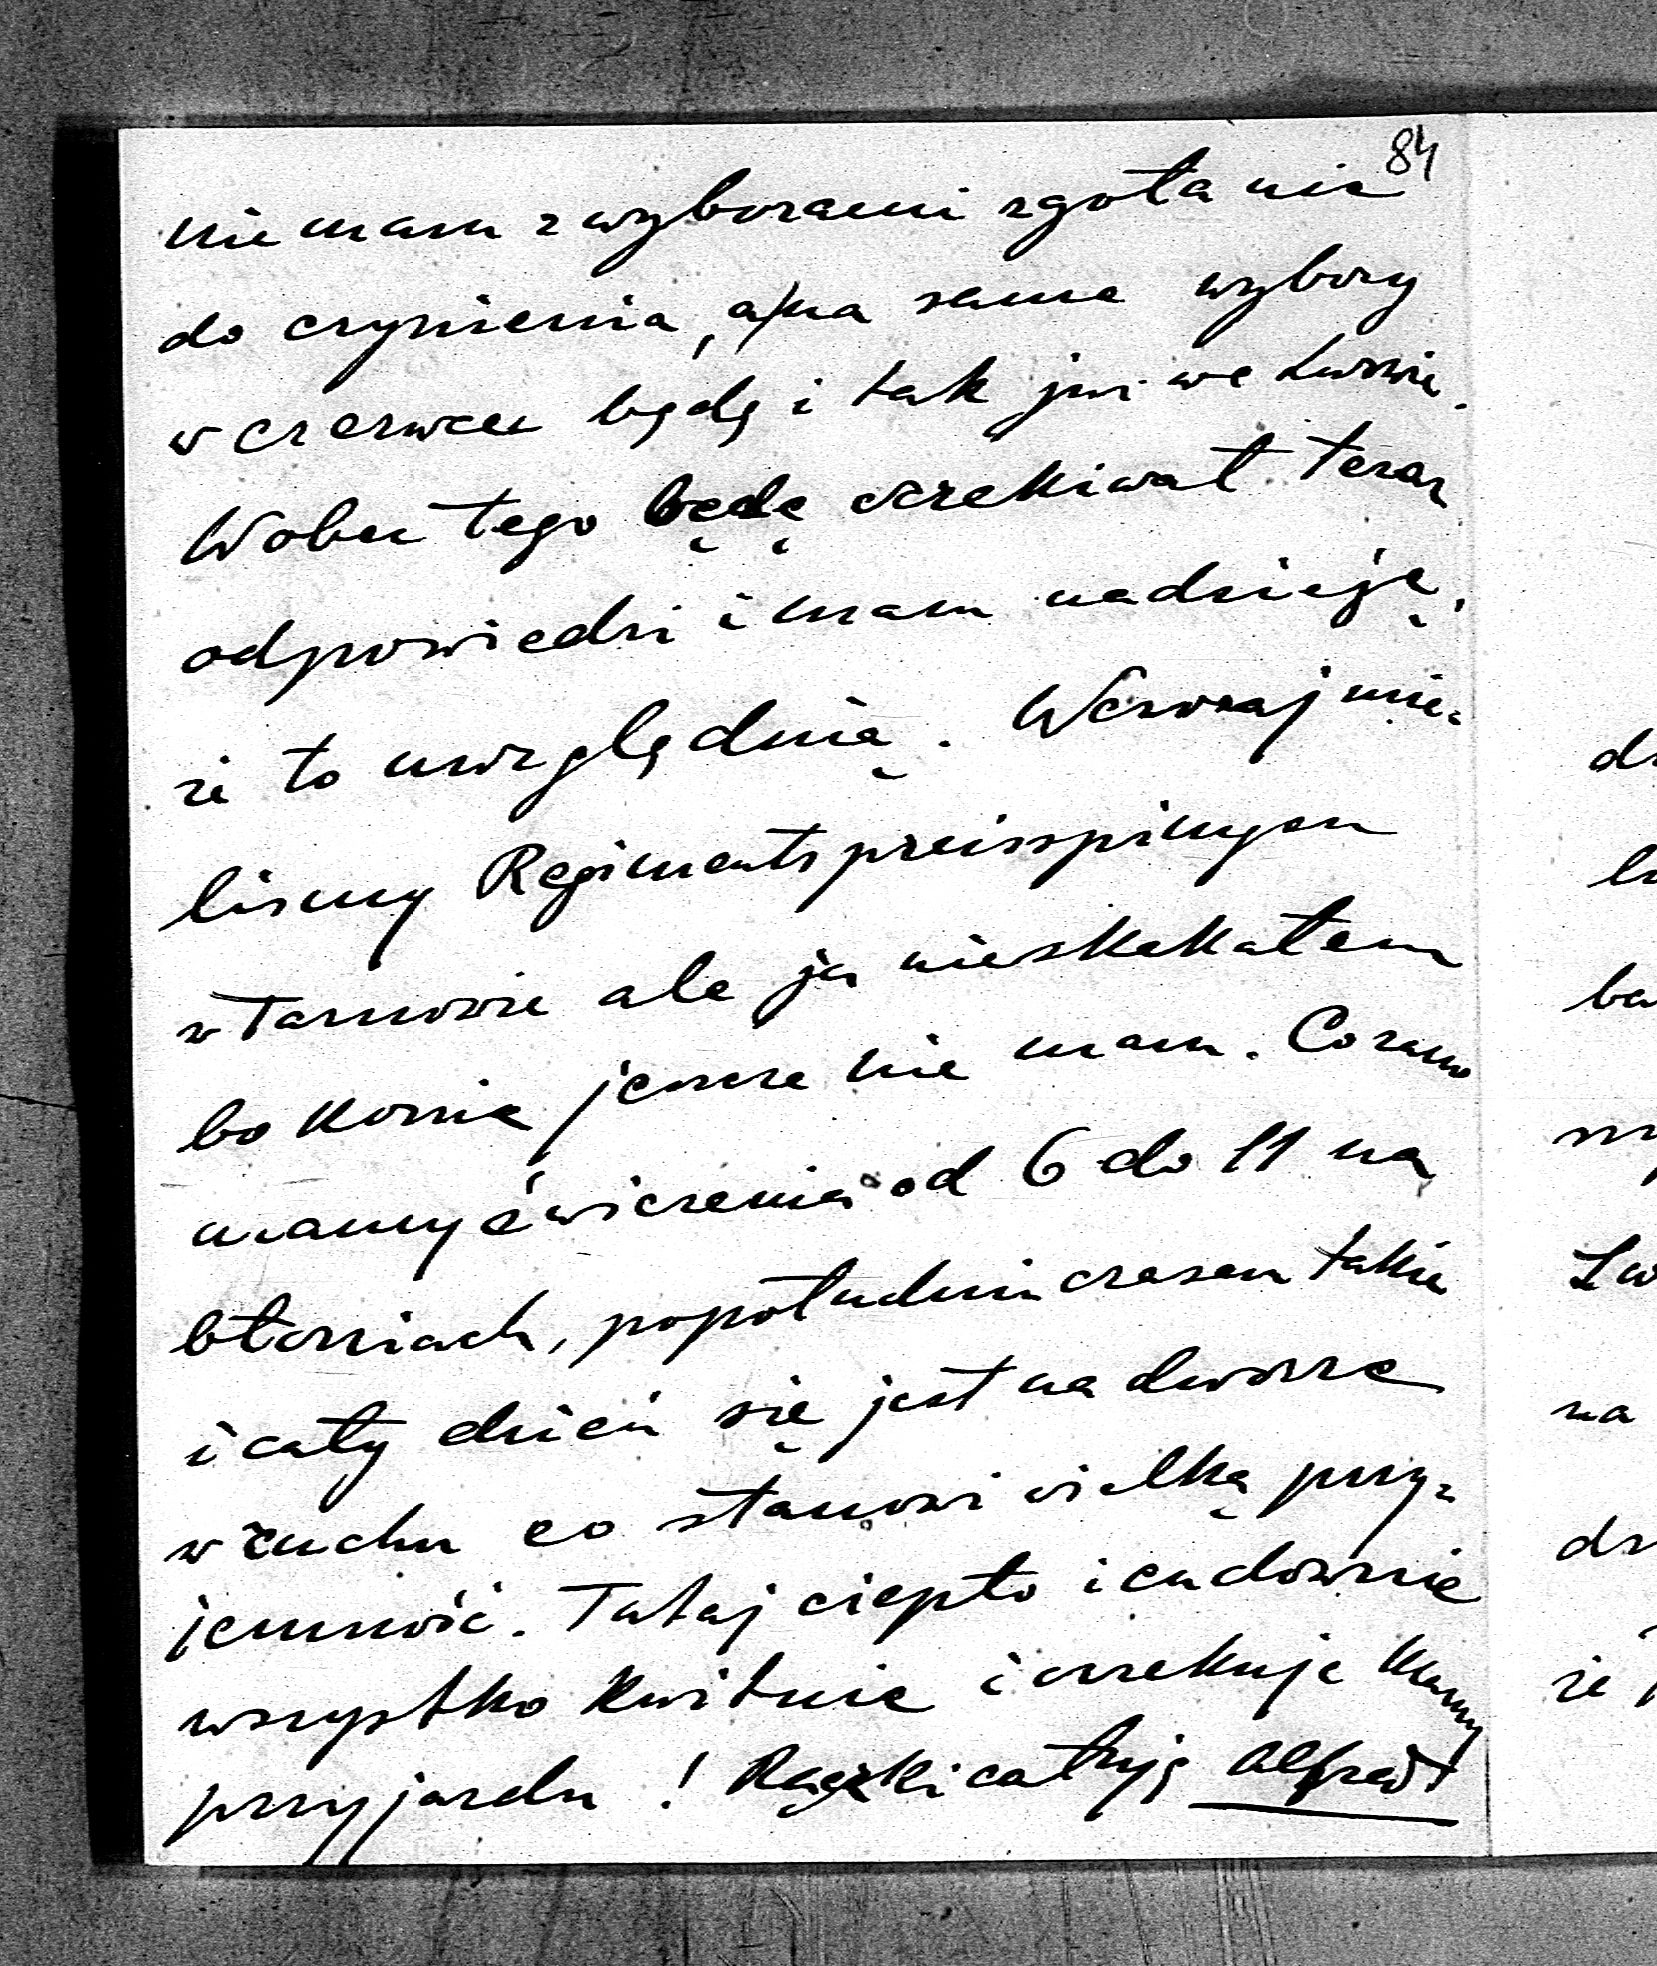 84
nie mam z wyborami zgoła nic
do czynienia, a na same wybory
w czerwcu będę i tak już we Lwowie.
Wobec tego będę oczekiwał teraz
odpowiedzi i mam nadzieję,
że to uwzględnią. Wczoraj mie-
liśmy Regimentspreisspringen
w Tarnowie ale ja nieskakałem
bo konia jeszcze nie mam. Co rano
mamy ćwiczenia od 6 do 11 na
błoniach, popołudniu czasem takie
i cały dzień się jest na dworze
w ruchu co stanowi wielką przy-
jemność. Tutaj ciepło i cudownie
wszystko kwitnie i oczekuje Mamy
przyjazdu! Rączki całuję Alfred